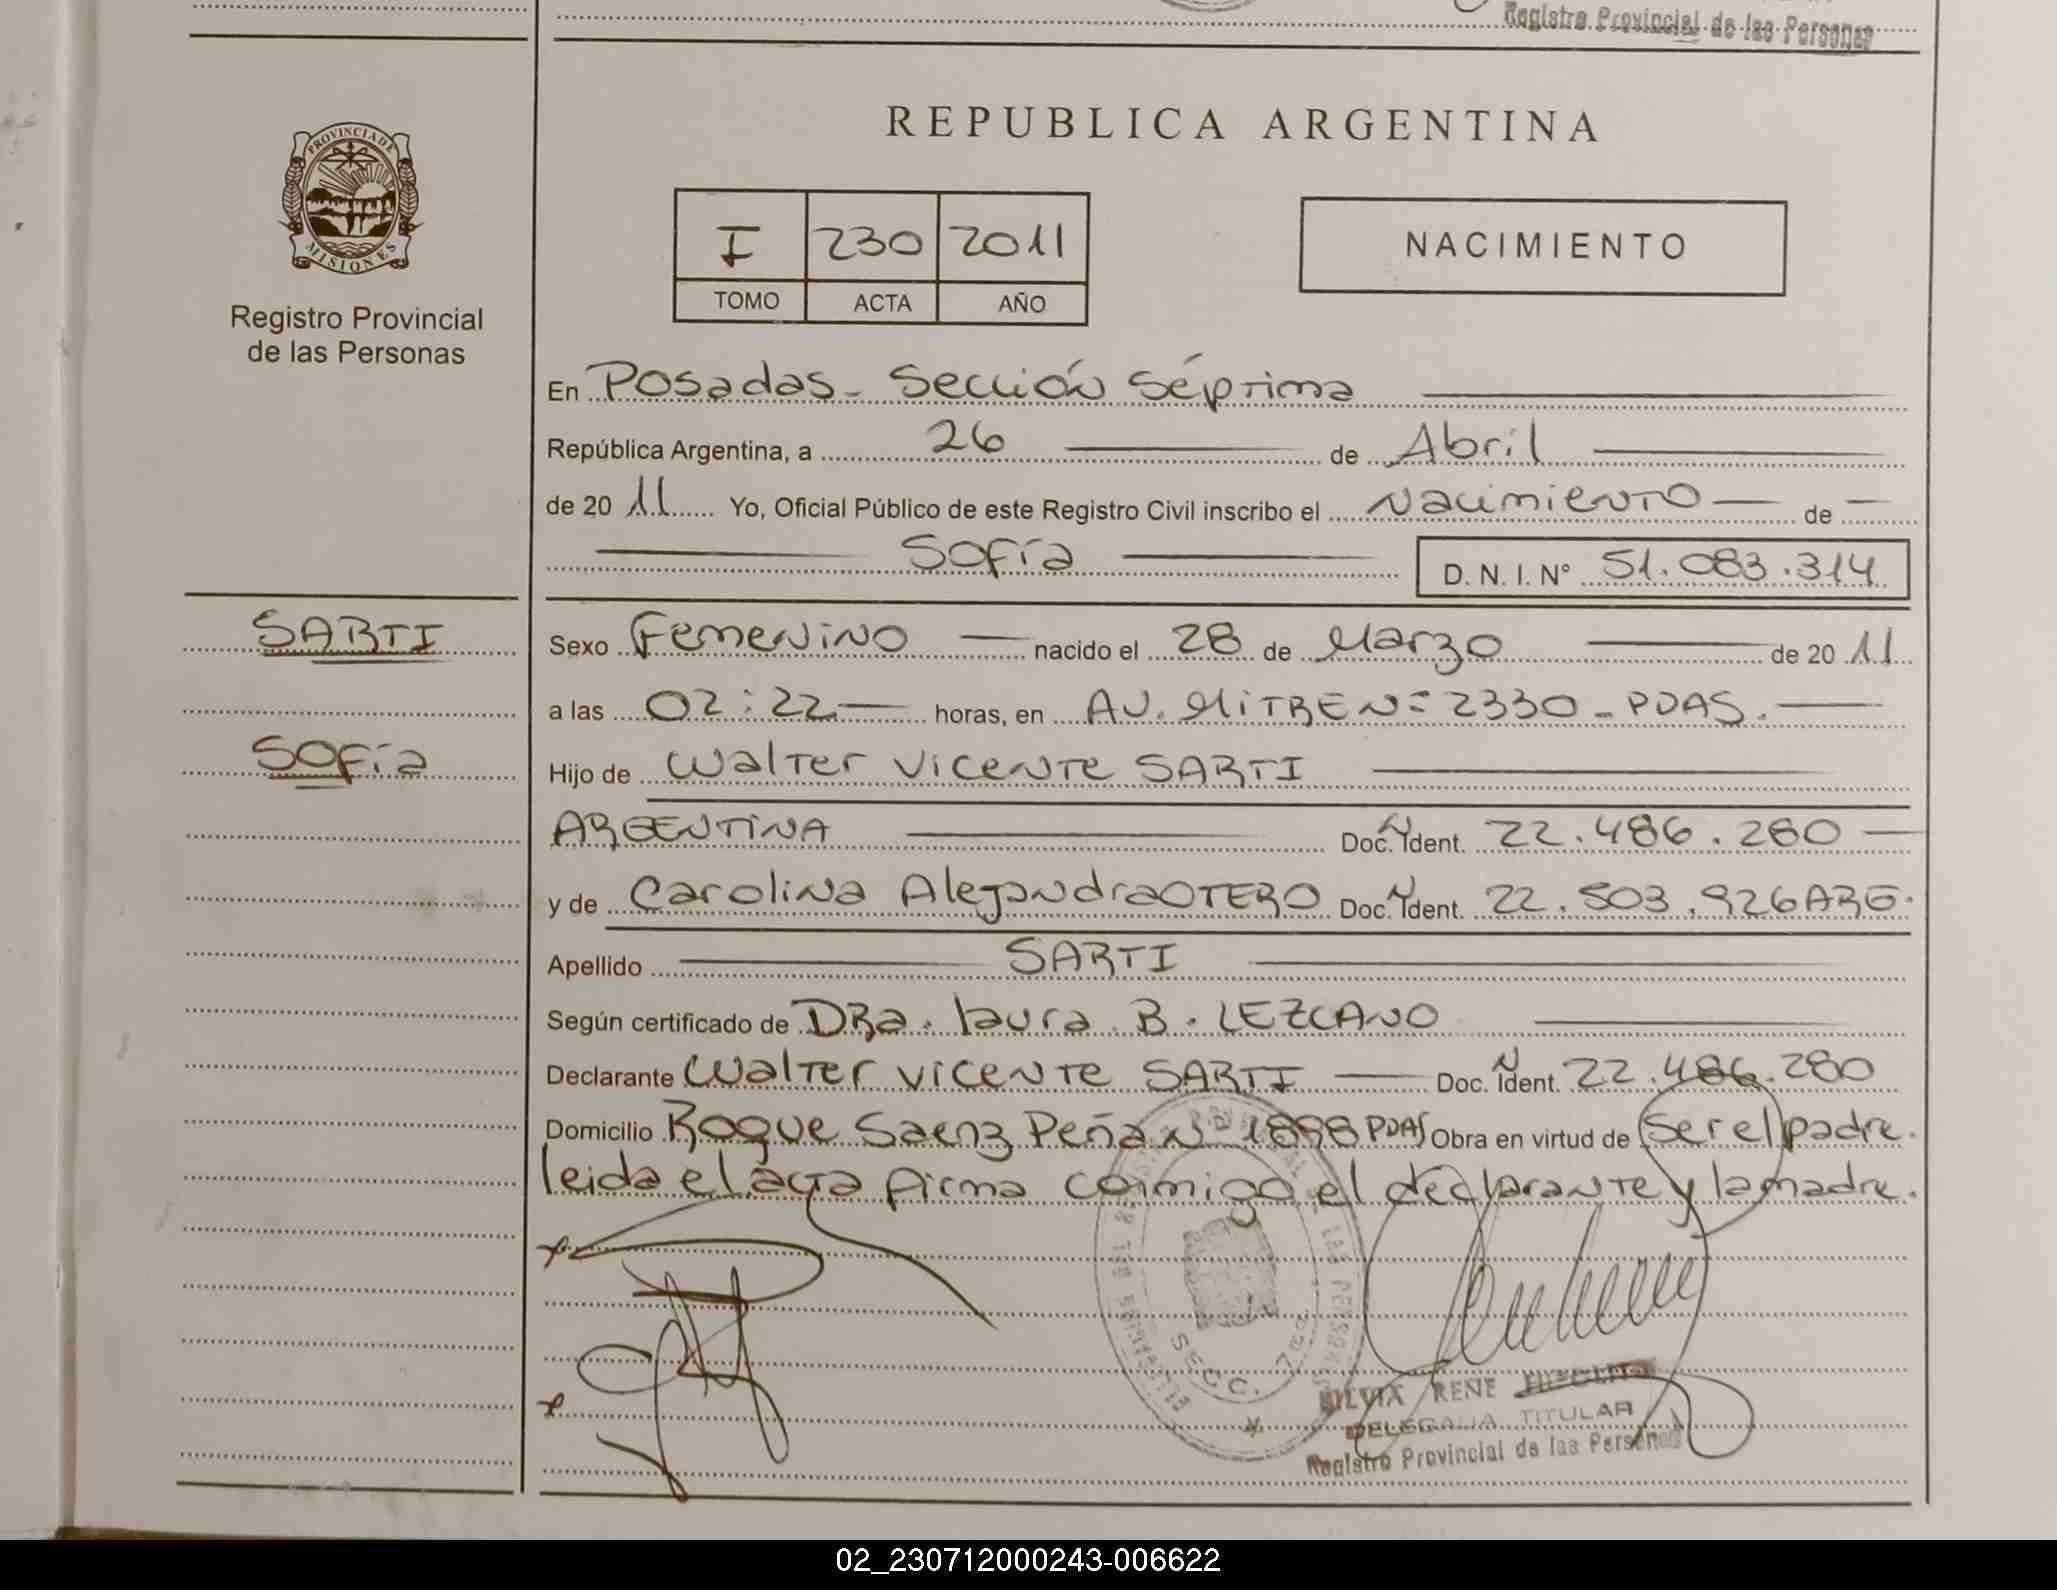 Registro Provincial de las Personas
REPUBLICA ARGENTINA
PROVINCIA DE
MISIONES
Registro Provincial
de las Personas
I 230 2011
TOMO ACTA AÑO
NACIMIENTO
En Posadas - Sección Séptima
República Argentina, a 26 de Abril
de 20 11 Yo, Oficial Público de este Registro Civil inscribo el Nacimiento de
Sofía D. N. I. N° 51.083.314
SARTI
Sofía
Sexo Femenino nacido el 28 de Marzo de 20 11
a las 02:22 horas, en AV. MITRE Nº 2330 - PDAS.
Hijo de Walter Vicente SARTI
ARGENTINA Doc. N Ident. 22.486.280
y de Carolina Alejandra OTERO Doc. N Ident. 22.503.926 ARG.
Apellido SARTI
Según certificado de DRa. laura B. LEZCANO
Declarante Walter Vicente SARTI Doc. N Ident. 22.486.280
Domicilio Roque Saenz Peña Nº 1898 PDAS Obra en virtud de ser el padre.
leida el acta firma conmigo el declarante y la madre.
SECC. 7ma
SILVIA RENE
DELEGADA TITULAR
Registro Provincial de las Personas
02_230712000243-006622